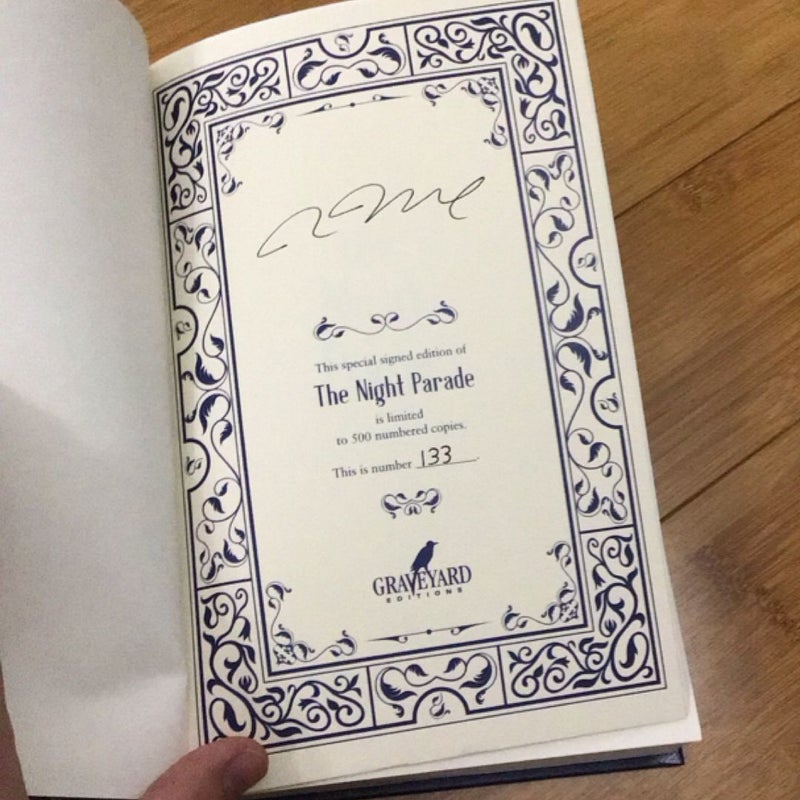 This special signed edition of
The Night Parade
is limited
to 500 numbered copies.
This is number 133.
GRAVEYARD
EDITIONS